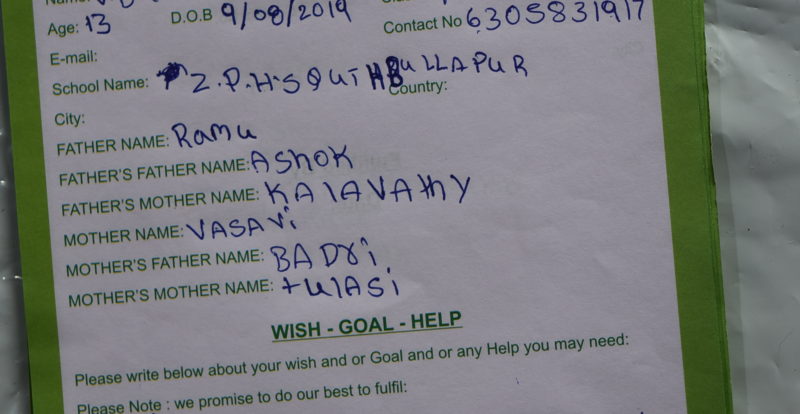 Age: 13 D.O.B 9/08/2019 Contact No 6305831917
E-mail:
School Name: Z.P.H.S QUTHBULLAPUR
City: Country:
FATHER NAME: Ramu
FATHER'S FATHER NAME: ASHOK
FATHER'S MOTHER NAME: KALAVATHY
MOTHER NAME: VASAVi
MOTHER'S FATHER NAME: BADri
MOTHER'S MOTHER NAME: tulASi
WISH - GOAL - HELP
Please write below about your wish and or Goal and or any Help you may need:
Please Note : we promise to do our best to fulfil: